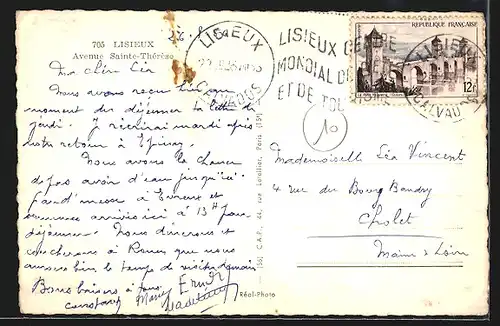 705 LISIEUX
Avenue Sainte-Thérèse
LISIEUX
CALVADOS
LISIEUX CENTRE
MONDIAL DE
ET DE
REPUBLIQUE FRANÇAISE
12F
LISIEUX
CALVADOS
10
Ma chère Léa
Nous avons reçu hier au
moment du déjeuner ta lettre de
jeudi. J'écrirai mardi après
notre retour à Epinay.
Nous avons la chance
de pas avoir d'eau jusqu'ici
à Evreux et
sommes arrivés ici à 13H pour
déjeuner. Nous dînerons et
coucherons à Rouen que nous
aurons bien le temps de visiter demain
Bons baisers à tous.
Mademoiselle Léa Vincent
4 rue du Bourg Baudry
Cholet
Maine & Loire
C.A.P. 44, rue Letellier, Paris (15e)
Réal-Photo